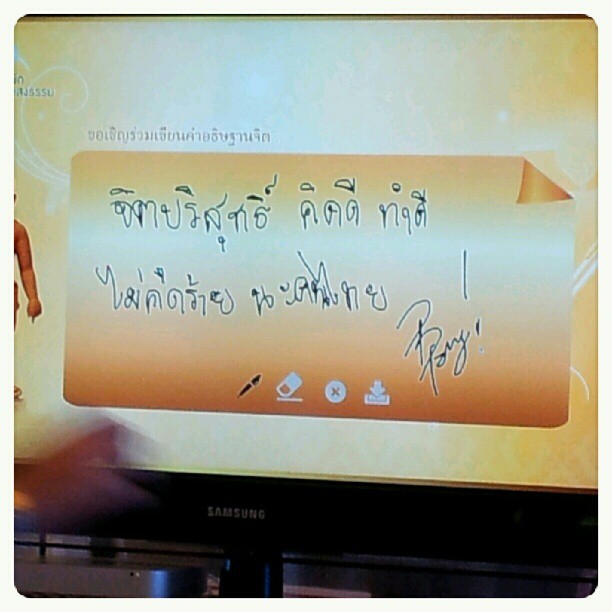 สงธรรม
ขอเชิญร่วมเขียนคำอธิษฐานจิต
จิตบริสุทธิ์ คิดดี ทำดี
ไม่คิดร้าย นะคนไทย !
SAMSUNG